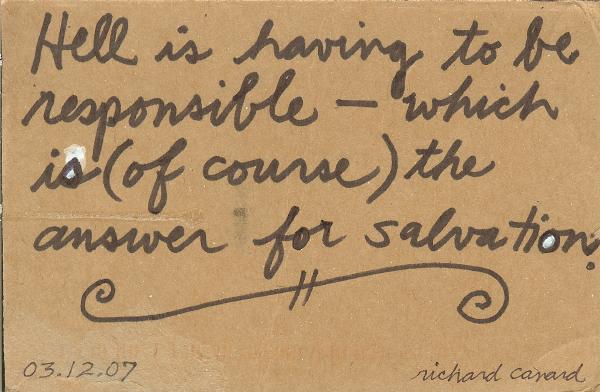 Hell is having to be
responsible — which
is (of course) the
answer for salvation.
03.12.07
richard canard